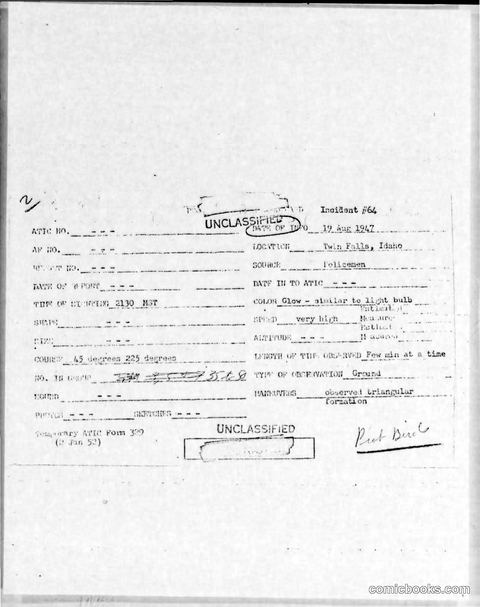 2
Incident #64
UNCLASSIFIED
ATIC NO. - - -
DATE OF INFO 19 Aug 1947
AF NO. - - -
LOCATION Twin Falls, Idaho
REPORT NO. - - -
SOURCE Policemen
DATE OF REPORT - - -
DATE IN TO ATIC - - -
TIME OF SIGHTING 2130 MST
COLOR Glow - similar to light bulb
SHAPE
SPEED very high
SIZE - - -
ALTITUDE - - -
COURSE 45 degrees 225 degrees
LENGTH OF TIME OBSERVED Few min at a time
NO. IN GROUP
TYPE OF OBSERVATION Ground
SOUND - - -
MANEUVERS observed triangular
formation
PHOTOS - - - SKETCHES - - -
Temporary ATIC Form 329
(2 Jan 52)
UNCLASSIFIED
comicbooks.com